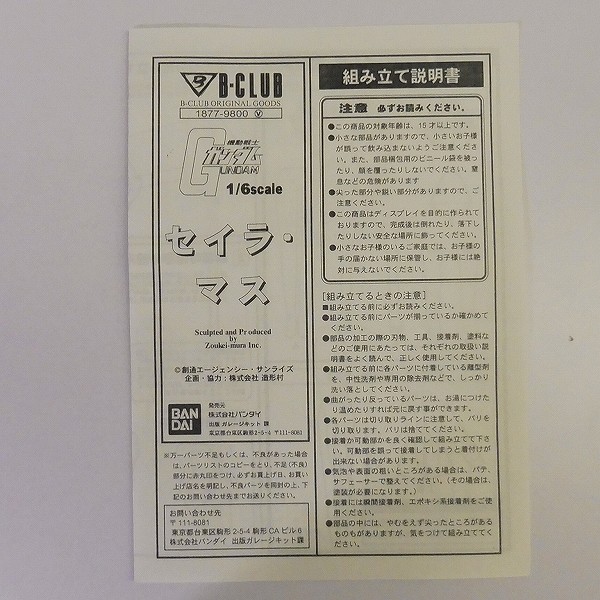 B-CLUB
B-CLUB ORIGINAL GOODS
1877-9800 Ⓥ
機動戦士
ガンダム
GUNDAM
1/6scale
セイラ・
マス
Sculpted and Produced
by
Zoukei-mura Inc.
©創通エージェンシー・サンライズ
企画・協力：株式会社 造形村
BAN
DAI
発売元
株式会社バンダイ
出版 ガレージキット 課
東京都台東区駒形2-5-4 〒111-8081
※万一パーツ不足もしくは、不良があった場合
は、パーツリストのコピーをとり、不足（不良）
部分に赤丸印をつけ、必ずお買上げ日、お買い
上げ店名を明記し、不良パーツを同封の上、下
記のお問い合わせ先までお送りください。
お問い合わせ先
〒111-8081
東京都台東区駒形2-5-4 駒形CAビル6
株式会社バンダイ 出版ガレージキット課
組み立て説明書
注意 必ずお読みください。
●この商品の対象年齢は、15才以上です。
●小さな部品がありますので、小さいお子様
が誤って飲み込まないようご注意くださ
い。また、部品梱包用のビニール袋を被っ
たり、顔を覆ったりしないでください。窒
息などの危険があります
●尖った部分や鋭い部分がありますので、ご
注意ください。
●この商品はディスプレイを目的に作られて
おりますので、完成後は倒れたり、落下し
たりしない安全な場所に飾ってください。
●小さなお子様のいるご家庭では、お子様の
手の届かない場所に保管し、お子様には絶
対に与えないでください。
[組み立てるときの注意]
■組み立てる前に必ずお読みください。
●組み立てる前にパーツが揃っているか確かめて
ください。
●部品の加工の際の刃物、工具、接着剤、塗料な
どのご使用にあたっては、それぞれの取扱い説
明書をよく読んで、正しく使用してください。
●組み立てる前に各パーツに付着している離型剤
を、中性洗剤や専用の除去剤などで、しっかり
洗い落としてください。
●曲がったり反っているパーツは、お湯につけた
り温めたりすれば元に戻す事ができます。
●各パーツは切り取りラインに注意して、バリを
切り取ります。バリは捨ててください。
●接着か可動部かを良く確認して組み立てて下さ
い。可動部を誤って接着してしまうと着付けが
出来ない場合があります。
●気泡や表面の粗いところがある場合は、パテ、
サフェーサーで整えてください。（その場合は、
塗装が必要になります。）
●接着には瞬間接着剤、エポキシ系接着剤をご使
用ください。
●部品の中には、やむをえず尖ったところがある
ものもありますが、気をつけて組み立ててく
ださい。